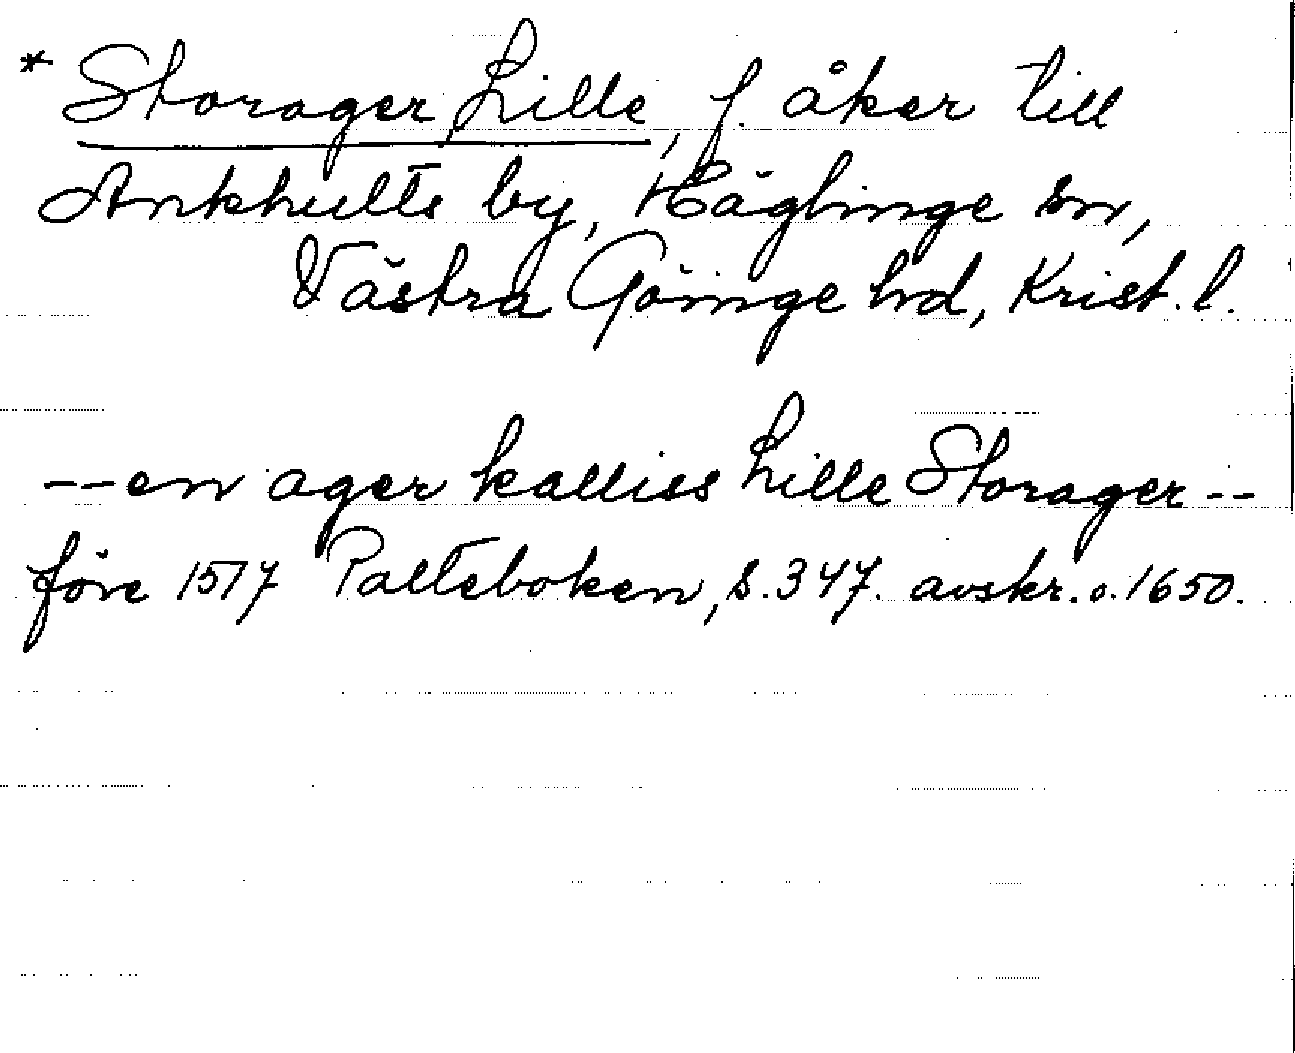 * Storager Lille, f. åker till
Ankhults by, Häglinge sn,
Västra Göinge hd, Krist. l.
--en ager kalliss Lille Storager--
före 1517 Palteboken, s. 347. avskr. o. 1650.